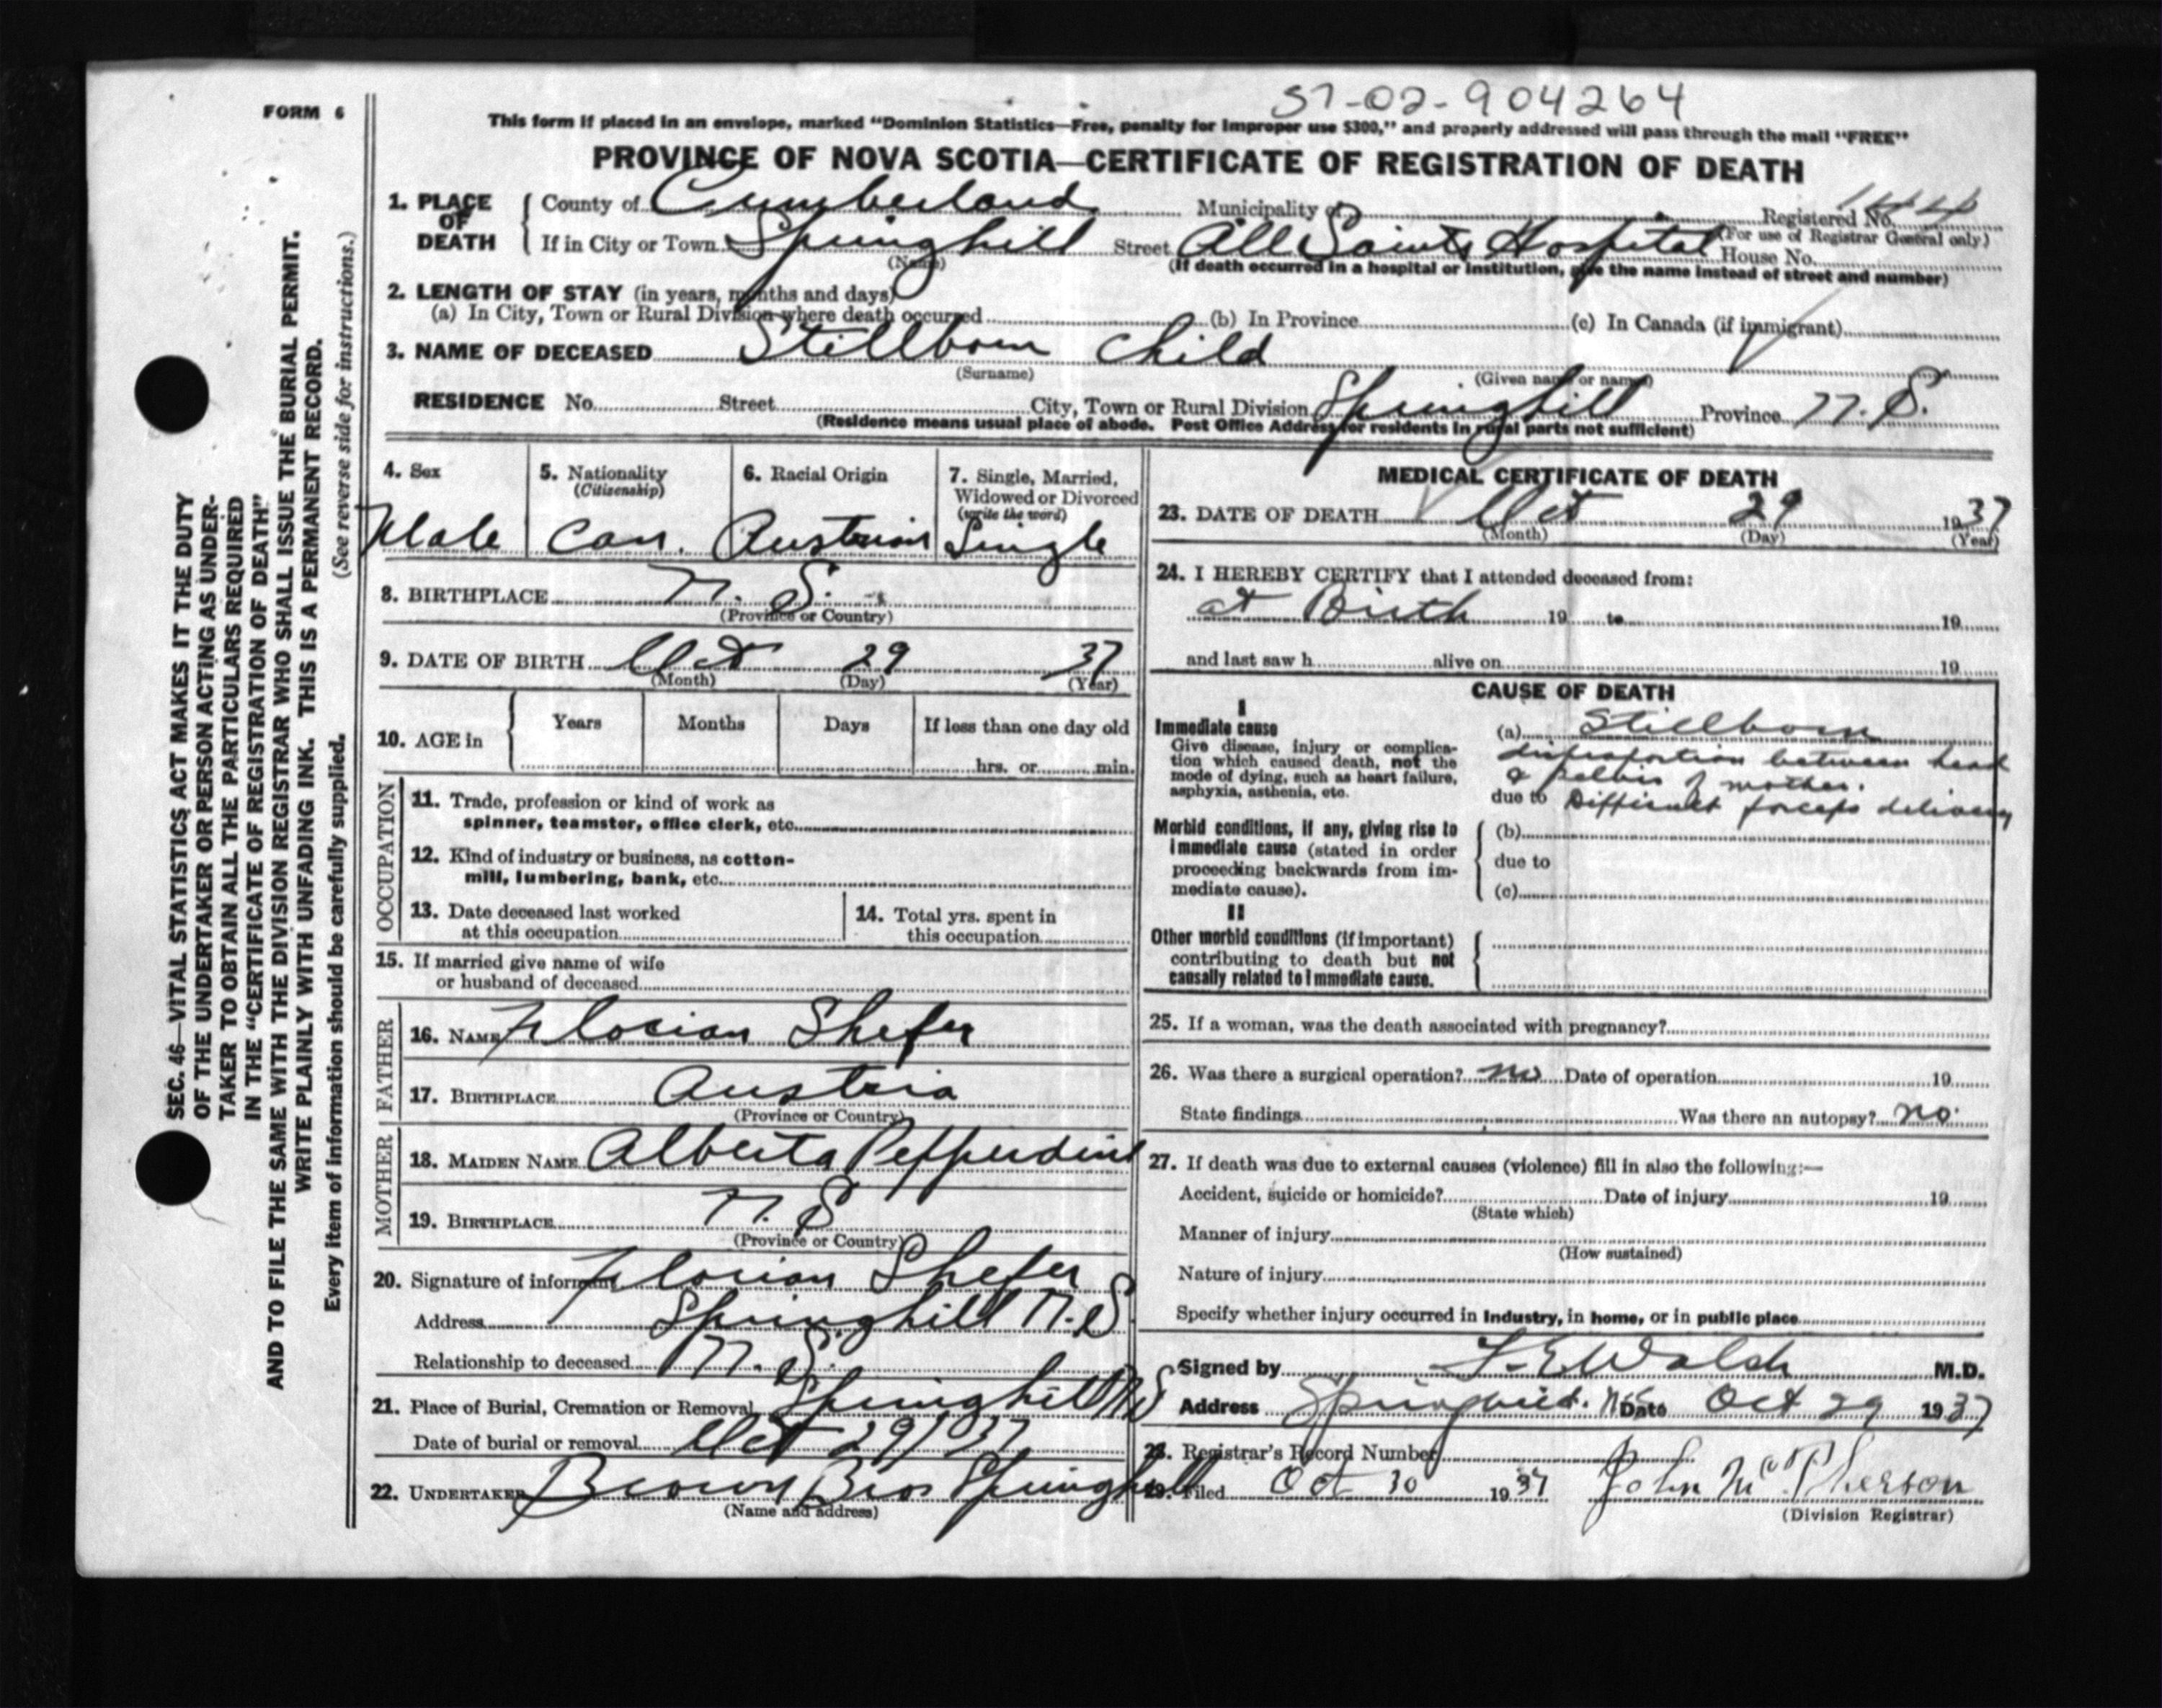 S7-02-904264
FORM 6
This form if placed in an envelope, marked "Dominion Statistics—Free, penalty for improper use $300," and properly addressed will pass through the mail "FREE"
PROVINCE OF NOVA SCOTIA—CERTIFICATE OF REGISTRATION OF DEATH
1. PLACE OF DEATH
County of Cumberland Municipality of Registered No. 144
(For use of Registrar General only)
If in City or Town Springhill Street All Saints Hospital House No.
(Name) (If death occurred in a hospital or institution, give the name instead of street and number)
2. LENGTH OF STAY (in years, months and days)
(a) In City, Town or Rural Division where death occurred (b) In Province (c) In Canada (if immigrant)
3. NAME OF DECEASED Stillborn Child
(Surname) (Given name or names)
RESIDENCE No. Street City, Town or Rural Division Springhill Province N. S.
(Residence means usual place of abode. Post Office Address for residents in rural parts not sufficient)
4. Sex
Male
5. Nationality
(Citizenship)
Can.
6. Racial Origin
Austrian
7. Single, Married,
Widowed or Divorced
(write the word)
Single
8. BIRTHPLACE N. S.
(Province or Country)
9. DATE OF BIRTH Oct 29 37
(Month) (Day) (Year)
10. AGE in
Years Months Days If less than one day old
hrs. or min.
OCCUPATION
11. Trade, profession or kind of work as
spinner, teamster, office clerk, etc.
12. Kind of industry or business, as cotton-
mill, lumbering, bank, etc.
13. Date deceased last worked
at this occupation
14. Total yrs. spent in
this occupation
15. If married give name of wife
or husband of deceased
FATHER
16. NAME Florian Shefer
17. BIRTHPLACE Austria
(Province or Country)
MOTHER
18. MAIDEN NAME Alberta Pepperdine
19. BIRTHPLACE N. S
(Province or Country)
20. Signature of informant Florian Shefer
Address Springhill N. S
Relationship to deceased N. S.
21. Place of Burial, Cremation or Removal Springhill N S
Date of burial or removal Oct 29/37
22. UNDERTAKER Brown Bros Springhill
(Name and address)
MEDICAL CERTIFICATE OF DEATH
23. DATE OF DEATH Oct 29 1937
(Month) (Day) (Year)
24. I HEREBY CERTIFY that I attended deceased from:
at Birth 19 to 19
and last saw h alive on 19
CAUSE OF DEATH
I
Immediate cause
Give disease, injury or complica-
tion which caused death, not the
mode of dying, such as heart failure,
asphyxia, asthenia, etc.
(a) Stillborn
disproportion between head
& pelvis of mother.
due to Difficult forceps delivery
Morbid conditions, if any, giving rise to
immediate cause (stated in order
proceeding backwards from im-
mediate cause).
(b)
due to
(c)
II
Other morbid conditions (if important)
contributing to death but not
causally related to immediate cause.
25. If a woman, was the death associated with pregnancy?
26. Was there a surgical operation? no Date of operation 19
State findings Was there an autopsy? no.
27. If death was due to external causes (violence) fill in also the following:—
Accident, suicide or homicide? Date of injury 19
(State which)
Manner of injury
(How sustained)
Nature of injury
Specify whether injury occurred in industry, in home, or in public place
Signed by F. E Walsh M.D.
Address Springhill. N.S. Date Oct 29 1937
28. Registrar's Record Number
29. Filed Oct 30 1937 John McPherson
(Division Registrar)
SEC. 46—VITAL STATISTICS ACT MAKES IT THE DUTY
OF THE UNDERTAKER OR PERSON ACTING AS UNDER-
TAKER TO OBTAIN ALL THE PARTICULARS REQUIRED
IN THE "CERTIFICATE OF REGISTRATION OF DEATH"
AND TO FILE THE SAME WITH THE DIVISION REGISTRAR WHO SHALL ISSUE THE BURIAL PERMIT.
WRITE PLAINLY WITH UNFADING INK. THIS IS A PERMANENT RECORD.
Every item of information should be carefully supplied. (See reverse side for instructions.)